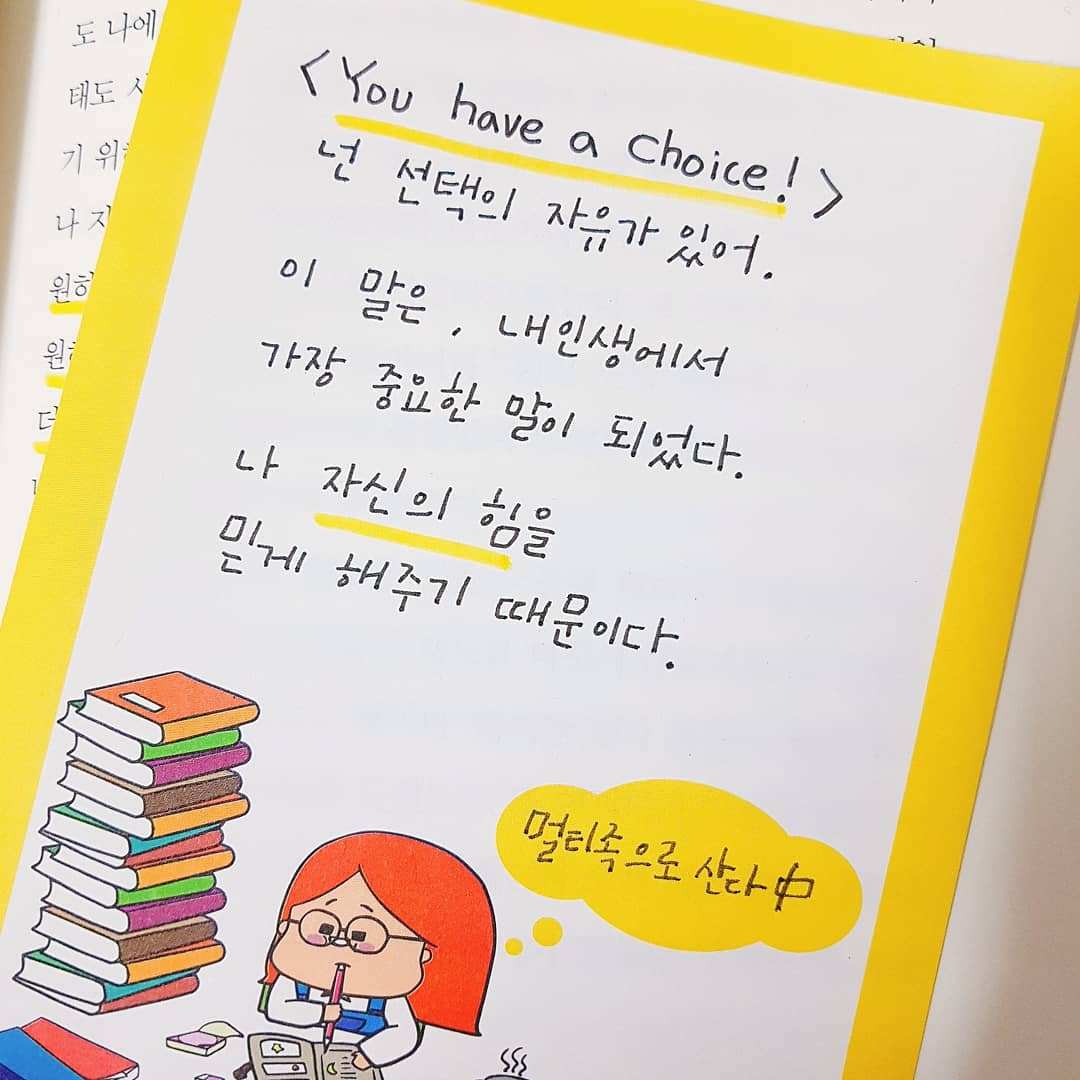 도 나에
태도
기 위
나 지
원하
원하
더
<You have a choice!>
넌 선택의 자유가 있어.
이 말은, 내인생에서
가장 중요한 말이 되었다.
나 자신의 힘을
믿게 해주기 때문이다.
멀티족으로 산다 中